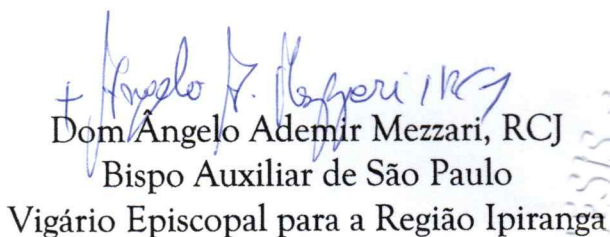 + Angelo A. Mezzari, RCJ
Dom Ângelo Ademir Mezzari, RCJ
Bispo Auxiliar de São Paulo
Vigário Episcopal para a Região Ipiranga